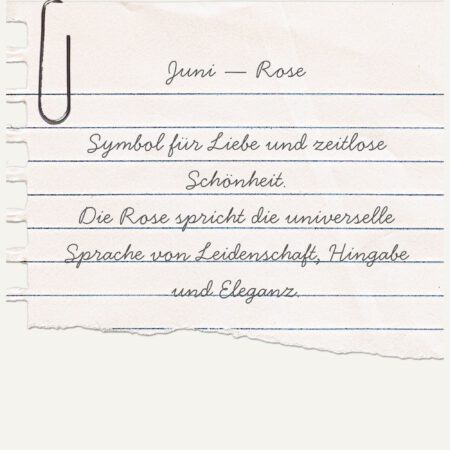 Juni — Rose
Symbol für Liebe und zeitlose
Schönheit.
Die Rose spricht die universelle
Sprache von Leidenschaft, Hingabe
und Eleganz.